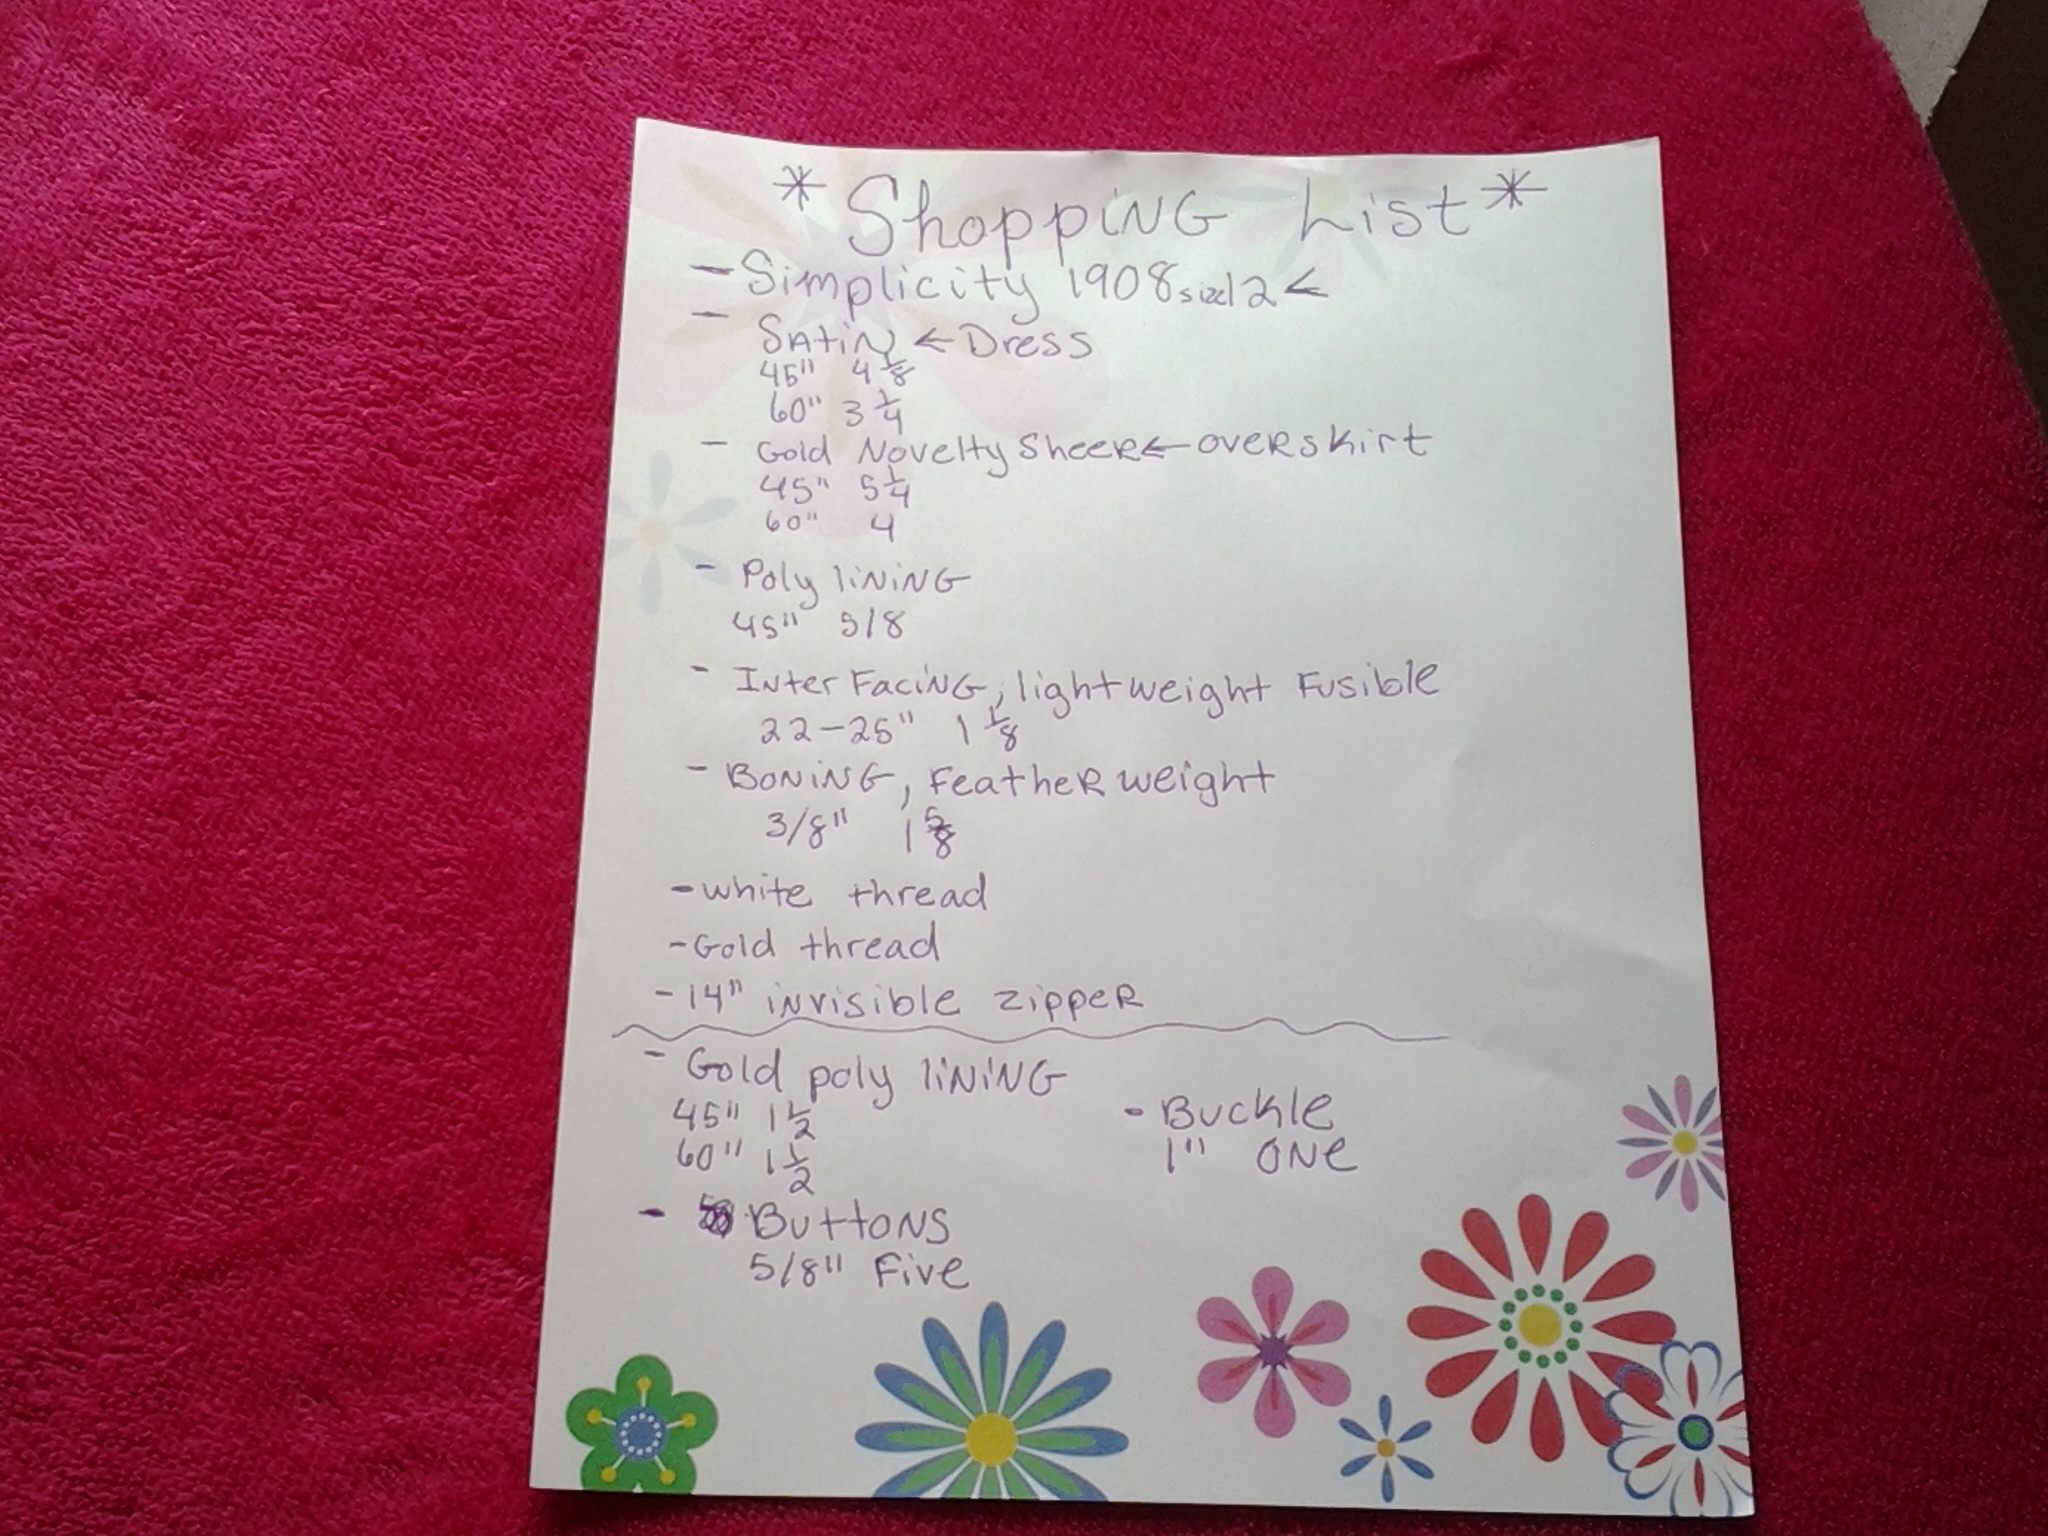 *Shopping List*
- Simplicity 1908 size12 ←
- Satin ← Dress
45" 4 1/8
60" 3 1/4
- Gold Novelty Sheer ← overskirt
45" 5 1/4
60" 4
- Poly lining
45" 5/8
- Inter Facing, lightweight Fusible
22-25" 1 1/8
- Boning, Featherweight
3/8" 1 5/8
- white thread
- Gold thread
- 14" invisible zipper
- Gold poly lining
45" 1 1/2
60" 1 1/2
- Buttons
5/8" Five
- Buckle
1" one